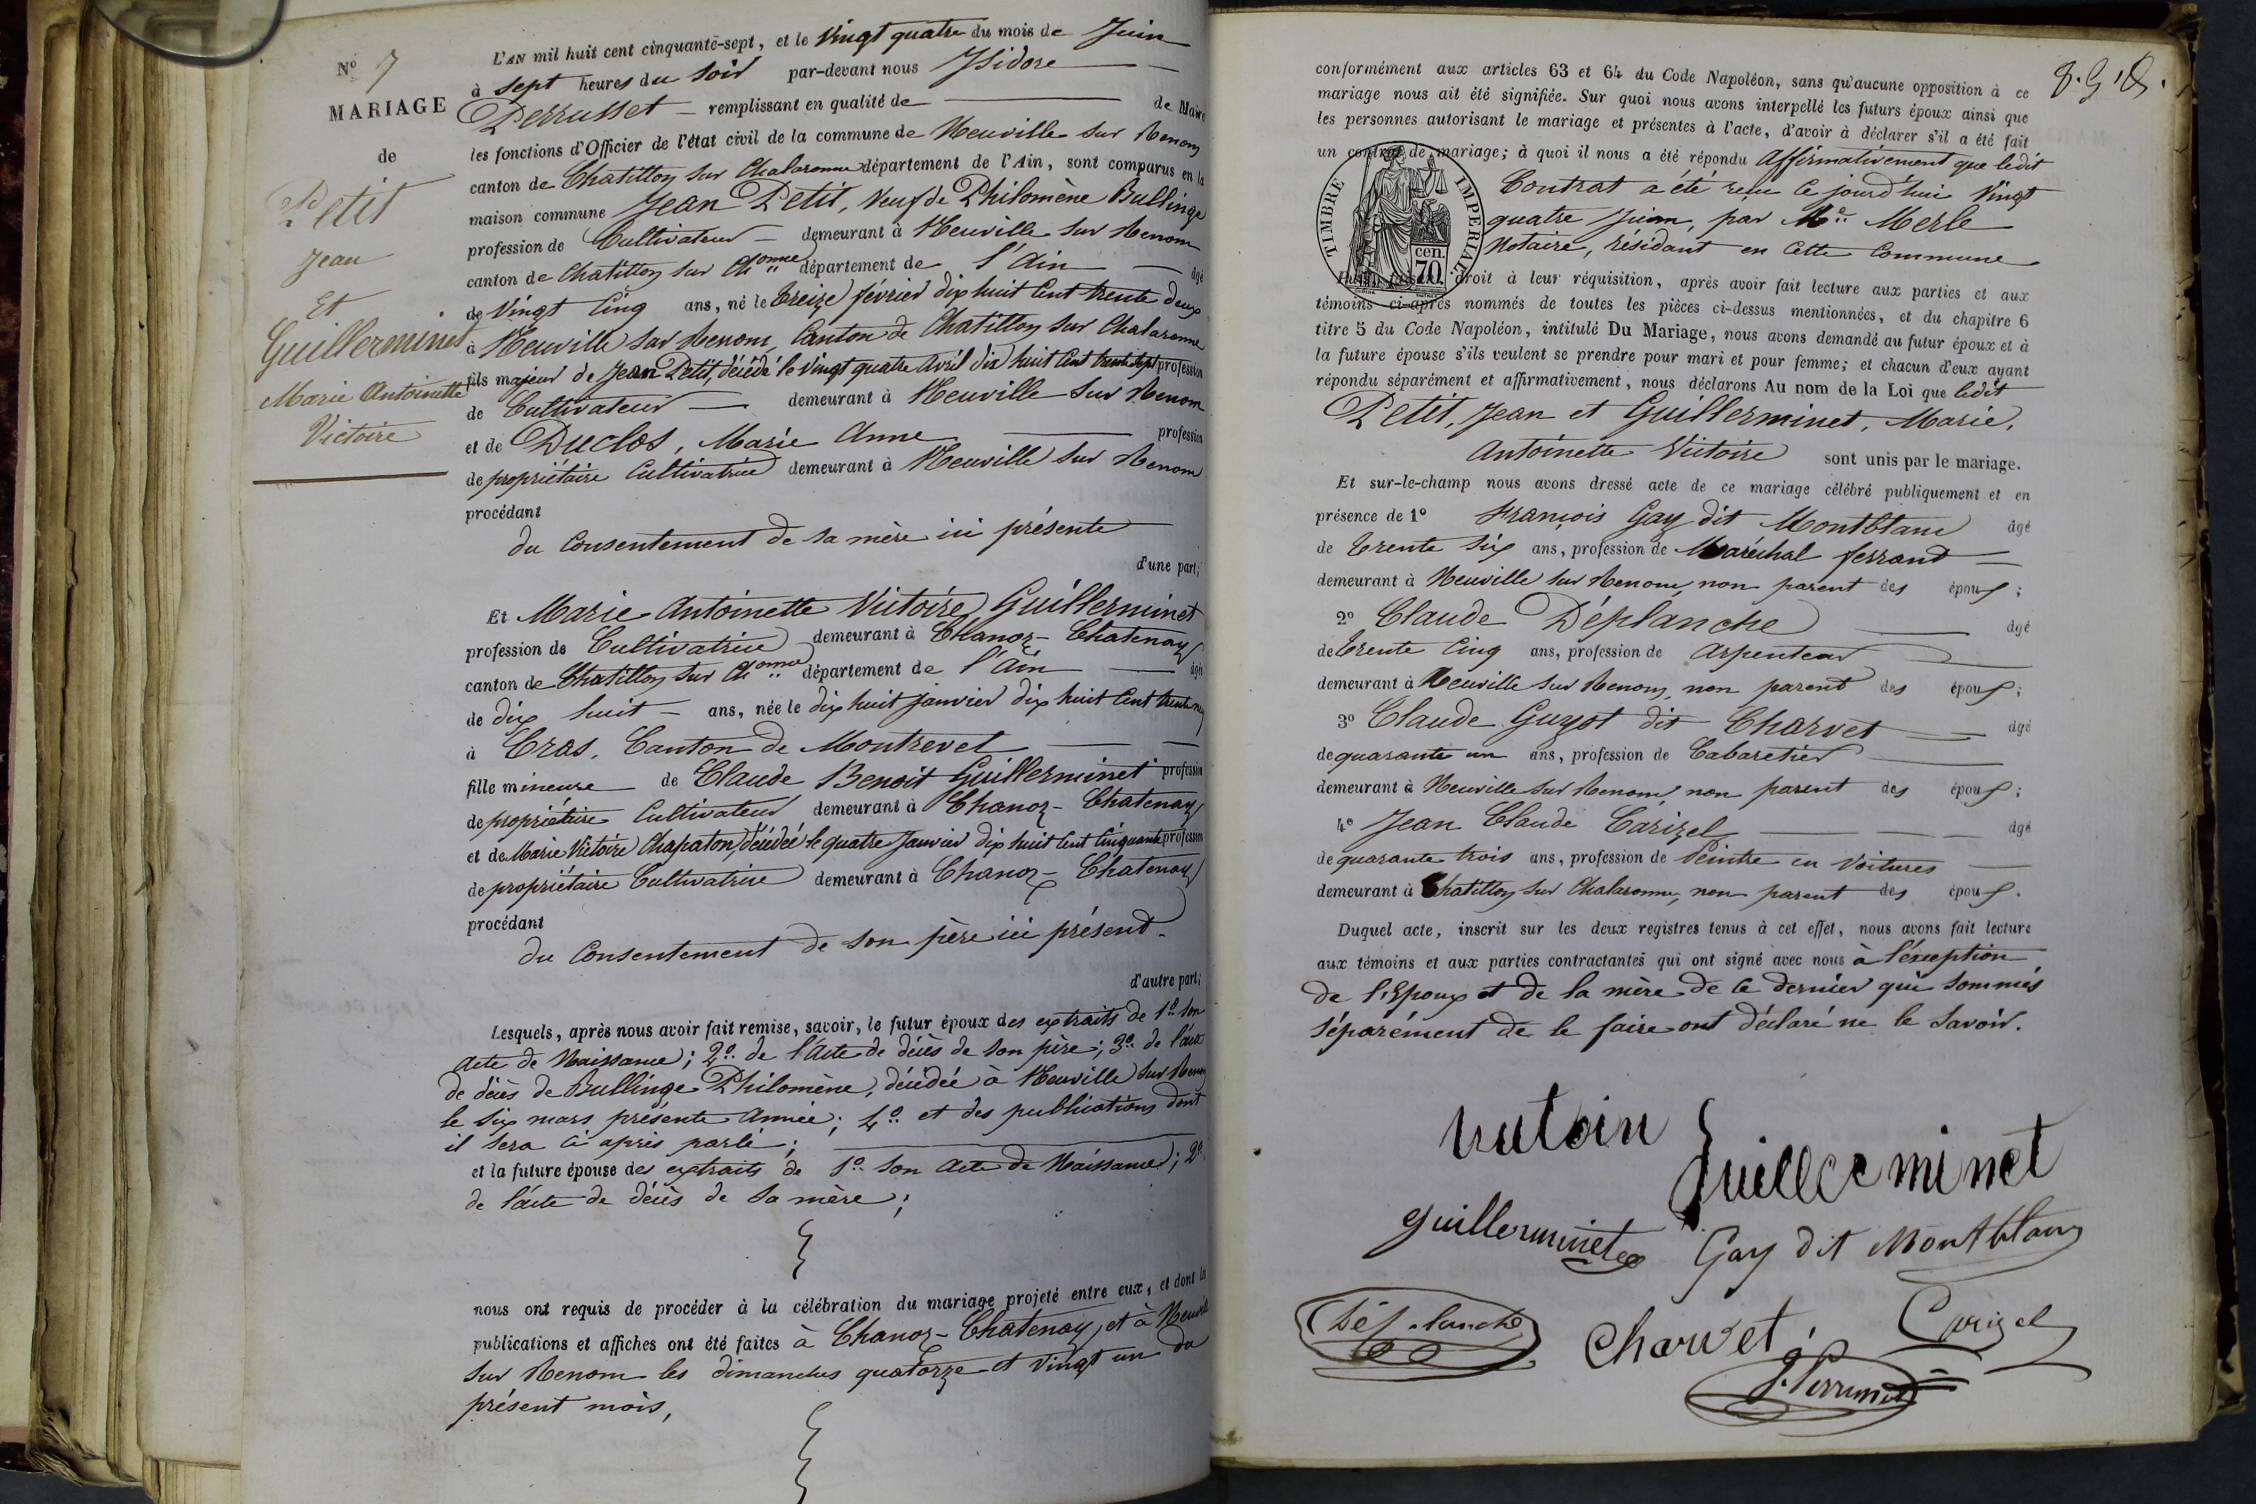 N° 7
MARIAGE
de
Petit
Jean
Et
Guillerminet
Marie Antoinette
Victoire
L'AN mil huit cent cinquante-sept, et le Vingt quatre du mois de Juin
à sept heures du soir par-devant nous Isidore
Perrusset remplissant en qualité de de Maire
les fonctions d'Officier de l'état civil de la commune de Neuville sur Renom
canton de Chatillon sur Chalaronne département de l'Ain, sont comparus en la
maison commune Jean Petit, Veuf de Philomène Bullinge
profession de Cultivateur demeurant à Neuville sur Renom
canton de Chatillon sur Ch.onne département de l'Ain âgé
de Vingt Cinq ans, né le treize février dix huit Cent trente deux
à Neuville sur Renom, Canton de Chatillon sur Chalaronne
fils majeur de Jean Petit, décédé le vingt quatre Avril dix huit Cent trente sept profession
de Cultivateur demeurant à Neuville sur Renom
et de Duclos, Marie Anne profession
de propriétaire Cultivatrice demeurant à Neuville sur Renom
procédant
du Consentement de sa mère ici présente
d'une part;
Et Marie Antoinette Victoire Guillerminet
profession de Cultivatrice demeurant à Chanoz-Chatenay
canton de Chatillon sur Ch.onne département de l'Ain âgée
de dix huit ans, née le dix huit janvier dix huit Cent trente neuf
à Cras, Canton de Montrevel
fille mineure de Claude Benoit Guillerminet profession
de propriétaire Cultivateur demeurant à Chanoz-Chatenay
et de Marie Victoire Chapaton, décédée le quatre Janvier dix huit Cent Cinquante profession
de propriétaire Cultivatrice demeurant à Chanoz-Chatenay
procédant
du Consentement de son père ici présent.
d'autre part;
Lesquels, après nous avoir fait remise, savoir, le futur époux des extraits de 1° son
Acte de Naissance; 2° de l'Acte de décès de son père; 3° de l'acte
de décès de Bullinge Philomène, décédée à Neuville sur Renom
le six mars présente Année; 4° et des publications dont
il sera Ci après parlé;
et la future épouse des extraits de 1° son Acte de Naissance; 2°
de l'acte de décès de sa mère;
nous ont requis de procéder à la célébration du mariage projeté entre eux, et dont les
publications et affiches ont été faites à Chanoz-Chatenay, et à Neuville
sur Renom les dimanches quatorze et Vingt un du
présent mois,
conformément aux articles 63 et 64 du Code Napoléon, sans qu'aucune opposition à ce
mariage nous ait été signifiée. Sur quoi nous avons interpellé les futurs époux ainsi que
les personnes autorisant le mariage et présentes à l'acte, d'avoir à déclarer s'il a été fait
un contrat de mariage; à quoi il nous a été répondu Affirmativement que ledit
Contrat a été reçu Ce jourd'hui Vingt
quatre Juin, par Me Merle
Notaire, résidant en Cette Commune
TIMBRE IMPÉRIAL
70 cen.
droit à leur réquisition, après avoir fait lecture aux parties et aux
témoins ci-après nommés de toutes les pièces ci-dessus mentionnées, et du chapitre 6
titre 5 du Code Napoléon, intitulé Du Mariage, nous avons demandé au futur époux et à
la future épouse s'ils veulent se prendre pour mari et pour femme; et chacun d'eux ayant
répondu séparément et affirmativement, nous déclarons Au nom de la Loi que ledit
Petit, Jean et Guillerminet, Marie,
Antoinette Victoire sont unis par le mariage.
Et sur-le-champ nous avons dressé acte de ce mariage célébré publiquement et en
présence de 1° François Gay dit Montblanc âgé
de trente Six ans, profession de Maréchal ferrand
demeurant à Neuville sur Renom, non parent des époux;
2° Claude Déplanche âgé
de trente Cinq ans, profession de Arpenteur
demeurant à Neuville sur Renom, non parent des époux;
3° Claude Guyot dit Charvet âgé
de quarante un ans, profession de Cabaretier
demeurant à Neuville sur Renom, non parent des époux;
4° Jean Claude Carizel âgé
de quarante trois ans, profession de Peintre en Voitures
demeurant à Chatillon sur Chalaronne, non parent des époux.
Duquel acte, inscrit sur les deux registres tenus à cet effet, nous avons fait lecture
aux témoins et aux parties contractantes qui ont signé avec nous à l'exception
de l'Epoux et de la mère de Ce dernier qui sommés
séparément de le faire ont déclaré ne le savoir.
Guillerminet
guillerminet Gay dit Montblanc
Déplanche Charvet Carizel